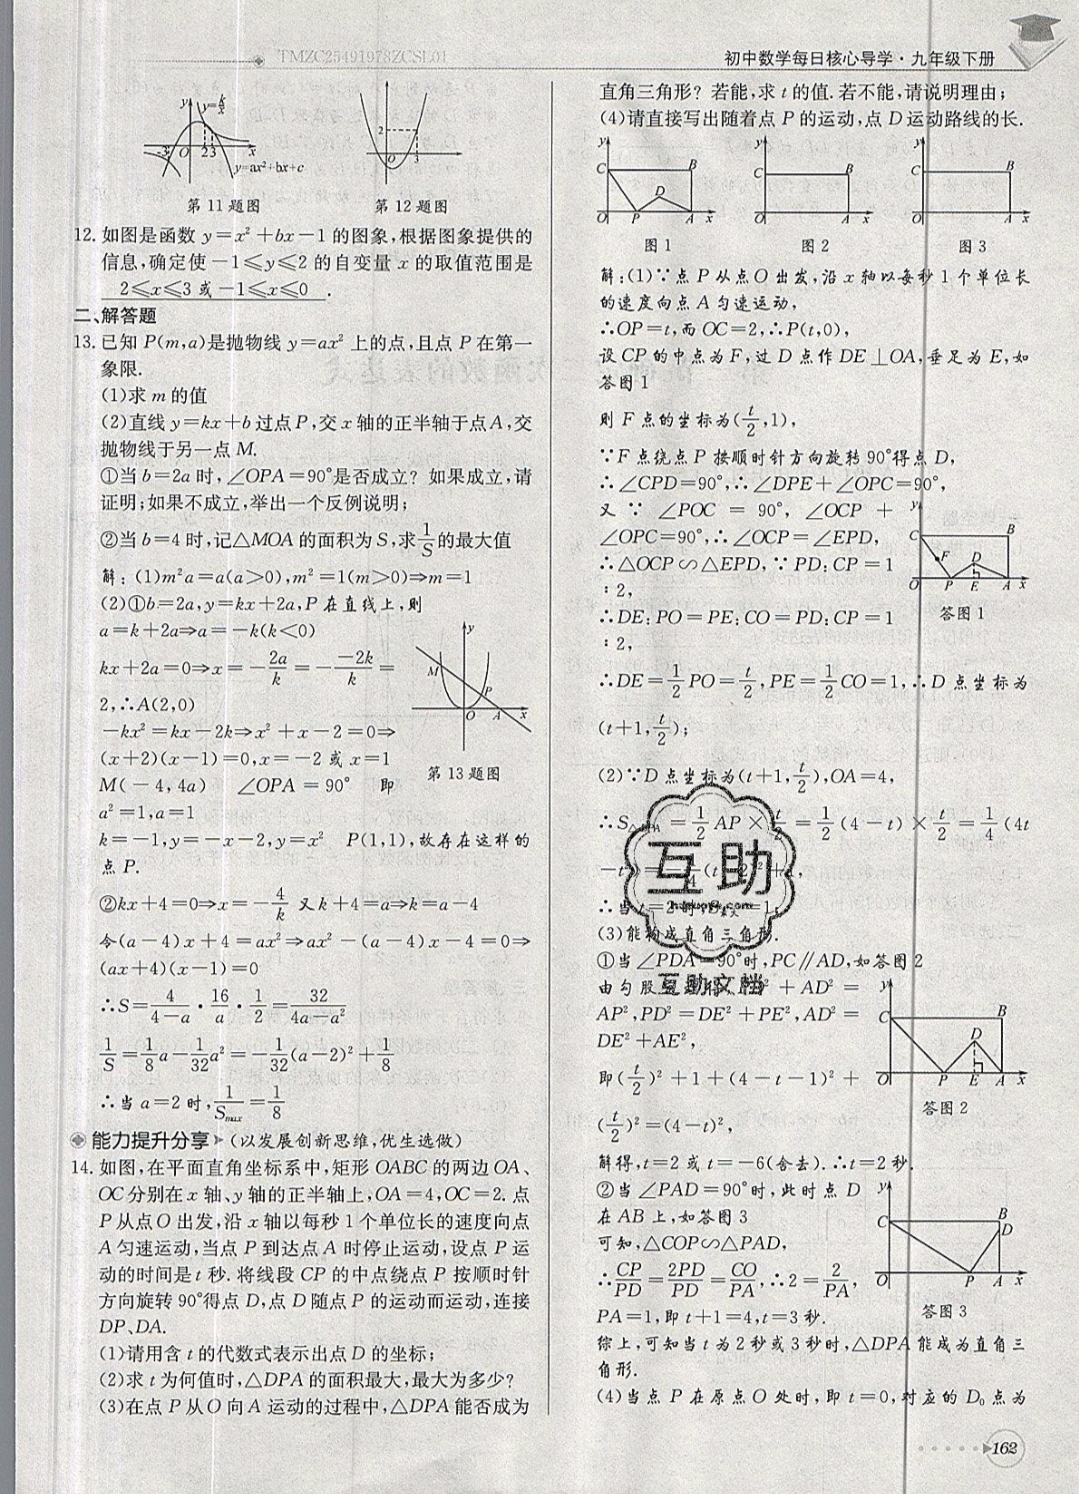 TMZC25491978ZCSL01
初中数学每日核心导学·九年级下册
y y=k/x
-3 O 2 3 x
y=ax²+bx+c
2
3
第11题图 第12题图
12. 如图是函数 y=x²+bx-1 的图象,根据图象提供的
信息,确定使 -1⩽y⩽2 的自变量 x 的取值范围是
2⩽x⩽3 或 -1⩽x⩽0 .
二、解答题
13. 已知 P(m,a)是抛物线 y=ax² 上的点,且点 P 在第一
象限.
(1)求 m 的值
(2)直线 y=kx+b 过点 P,交 x 轴的正半轴于点 A,交
抛物线于另一点 M.
①当 b=2a 时,∠OPA=90°是否成立? 如果成立,请
证明;如果不成立,举出一个反例说明;
②当 b=4 时,记△MOA 的面积为 S,求 1/S 的最大值
解: (1)m²a=a(a>0),m²=1(m>0)⇒m=1
(2)①b=2a,y=kx+2a,P 在直线上,则
a=k+2a⇒a=-k(k<0)
kx+2a=0⇒x=-2a/k=--2k/k=
2,∴A(2,0)
-kx²=kx-2k⇒x²+x-2=0⇒
(x+2)(x-1)=0,x=-2 或 x=1
M(-4,4a) ∠OPA=90° 即
a²=1,a=1
k=-1,y=-x-2,y=x² P(1,1),故存在这样的
点 P.
y
M P
O A x
第13题图
②kx+4=0⇒x=-4/k 又 k+4=a⇒k=a-4
令(a-4)x+4=ax²⇒ax²-(a-4)x-4=0⇒
(ax+4)(x-1)=0
∴S=4/(4-a)·16/a·1/2=32/(4a-a²)
1/S=1/8a-1/32a²=-1/32(a-2)²+1/8
∴当 a=2 时,1/Smax=1/8
能力提升分享 (以发展创新思维,优生选做)
14. 如图,在平面直角坐标系中,矩形 OABC 的两边 OA、
OC 分别在 x 轴、y 轴的正半轴上,OA=4,OC=2. 点
P 从点 O 出发,沿 x 轴以每秒 1 个单位长的速度向点
A 匀速运动,当点 P 到达点 A 时停止运动,设点 P 运
动的时间是 t 秒. 将线段 CP 的中点绕点 P 按顺时针
方向旋转 90°得点 D,点 D 随点 P 的运动而运动,连接
DP、DA.
(1)请用含 t 的代数式表示出点 D 的坐标;
(2)求 t 为何值时,△DPA 的面积最大,最大为多少?
(3)在点 P 从 O 向 A 运动的过程中,△DPA 能否成为
直角三角形? 若能,求 t 的值. 若不能,请说明理由;
(4)请直接写出随着点 P 的运动,点 D 运动路线的长.
y C B D O P A x
y C B O A x
y C B O A x
图1 图2 图3
解:(1)∵点 P 从点 O 出发,沿 x 轴以每秒 1 个单位长
的速度向点 A 匀速运动,
∴OP=t,而 OC=2,∴P(t,0),
设 CP 的中点为 F,过 D 点作 DE⊥OA,垂足为 E,如
答图 1
则 F 点的坐标为(t/2,1),
∵F 点绕点 P 按顺时针方向旋转 90°得点 D,
∴∠CPD=90°,∴∠DPE+∠OPC=90°,
又∵∠POC=90°,∠OCP+
∠OPC=90°,∴∠OCP=∠EPD,
∴△OCP∽△EPD,∵PD:CP=1
:2,
∴DE:PO=PE:CO=PD:CP=1
:2,
y C B F D O P E A x
答图1
∴DE=1/2PO=t/2,PE=1/2CO=1,∴D 点坐标为
(t+1,t/2);
(2)∵D 点坐标为(t+1,t/2),OA=4,
∴S =1/2AP× =1/2(4-t)×t/2=1/4(4t
互助
互助文档
(3)能构成直角三角形.
①当∠PDA=90°时,PC∥AD,如答图 2
由勾股 +AD²=
AP²,PD²=DE²+PE²,AD²=
DE²+AE²,
即(t/2)²+1+(4-t-1)²+
(t/2)²=(4-t)²,
y C B D O P E A x
答图2
解得,t=2 或 t=-6(舍去).∴t=2 秒.
②当∠PAD=90°时,此时点 D
在 AB 上,如答图 3
可知,△COP∽△PAD,
∴CP/PD=2PD/PD=CO/PA,∴2=2/PA,
PA=1,即 t+1=4,t=3 秒.
y C B D O P A x
答图3
综上,可知当 t 为 2 秒或 3 秒时,△DPA 能成为直角三
角形.
(4)当点 P 在原点 O 处时,即 t=0,对应的 D₀ 点为
162